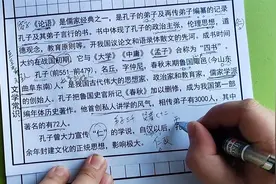 《论语》是儒家经典之一，是孔子的弟子及再传弟子编纂的记录
孔子及其弟子言行的书。书中体现了孔子的政治主张、伦理思想、
道德观念、教育原则等。开我国议论文和语录体散文的先河，成书时间
大约在战国初期。它与《大学》《中庸》《孟子》合称为“四书”。
孔子（前551—前479），名丘，字仲尼，春秋末期鲁国陬邑（今山东
曲阜东南）人，是我国古代伟大的思想家、政治家和教育家，儒家学派
的创始人。孔子把鲁国史官所记《春秋》加以删修，成为我国第一部
编年体历史著作。他首创私人讲学的风气，相传弟子有3000人，其中
著名的有72人。
孔子曾大力宣传“仁”的学说，自汉以后，
余年封建文化的正统思想，影响极大。
文学常识